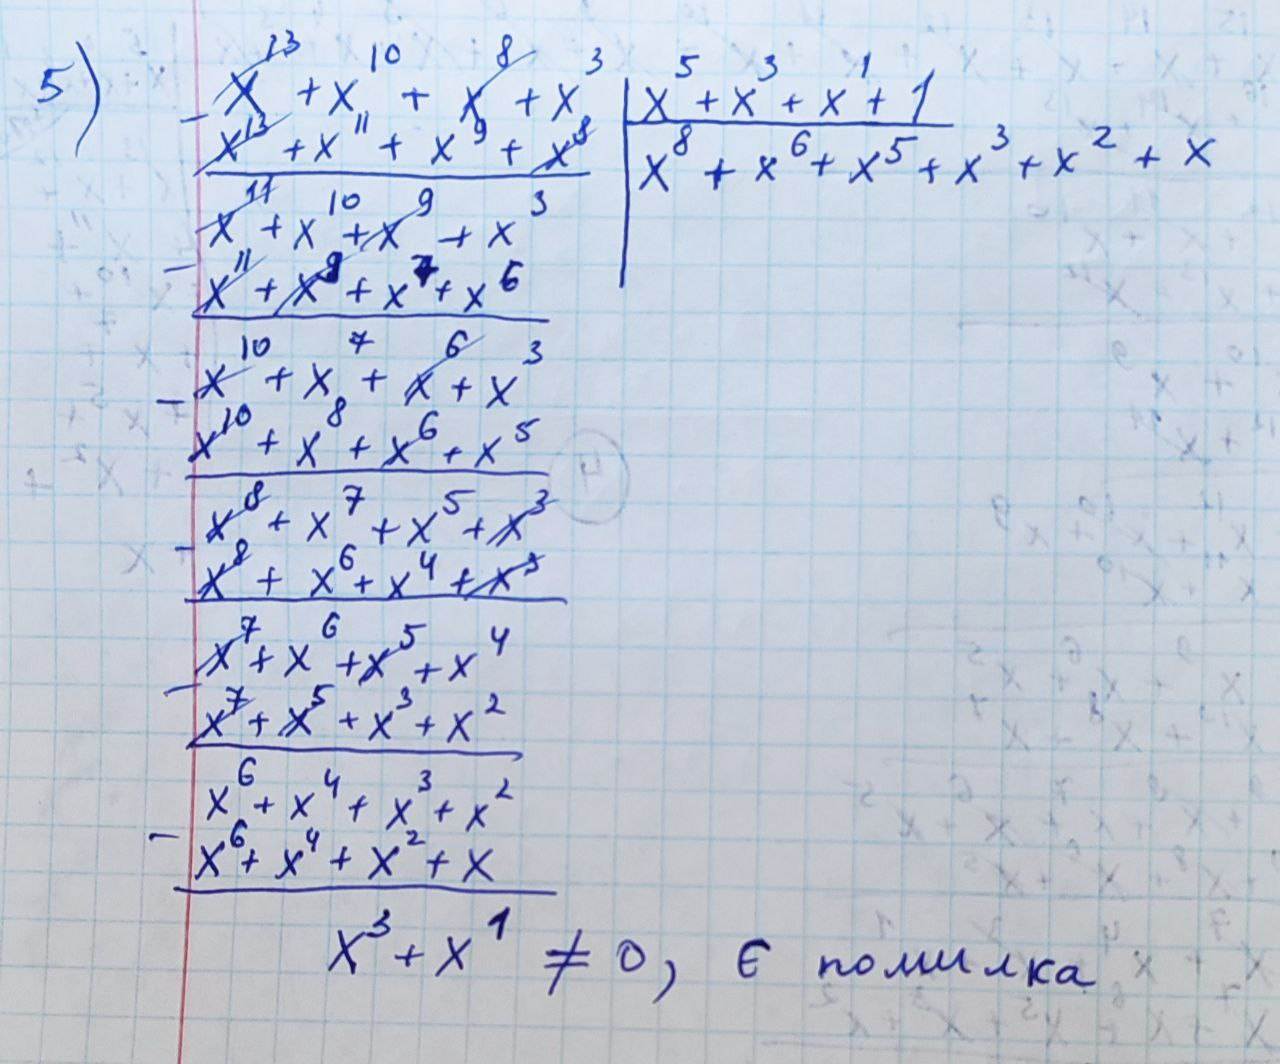 5) x¹³ + x¹⁰ + x⁸ + x³ | x⁵ + x³ + x¹ + 1
- x¹³ + x¹¹ + x⁹ + x⁸ | x⁸ + x⁶ + x⁵ + x³ + x² + x
x¹¹ + x¹⁰ + x⁹ + x³
- x¹¹ + x⁹ + x⁷ + x⁶
x¹⁰ + x⁷ + x⁶ + x³
- x¹⁰ + x⁸ + x⁶ + x⁵
x⁸ + x⁷ + x⁵ + x³
- x⁸ + x⁶ + x⁴ + x³
x⁷ + x⁶ + x⁵ + x⁴
- x⁷ + x⁵ + x³ + x²
x⁶ + x⁴ + x³ + x²
- x⁶ + x⁴ + x² + x
x³ + x¹ ≠ 0, є помилка